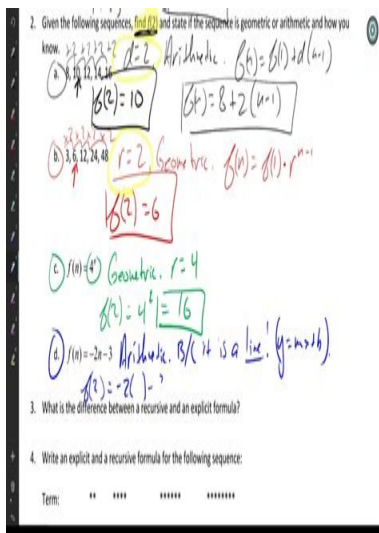 2. Given the following sequences, find f(2) and state if the sequence is geometric or arithmetic and how you
know. +2 +2 +2 +2 d=2 Arithmetic. f(n)=f(1)+d(n-1)
a. 8, 10, 12, 14, 16
f(2)=10 f(n)=8+2(n-1)
x2 x2 x2 x2
b. 3, 6, 12, 24, 48 r=2 Geometric. f(n)=f(1)·r^n-1
f(2)=6
c. f(n)=4^n Geometric. r=4
f(2)=4^2=16
d. f(n)=-2n-3 Arithmetic. B/C it is a line! (y=mx+b).
f(2)=-2( )-
3. What is the difference between a recursive and an explicit formula?
4. Write an explicit and a recursive formula for the following sequence:
Term: